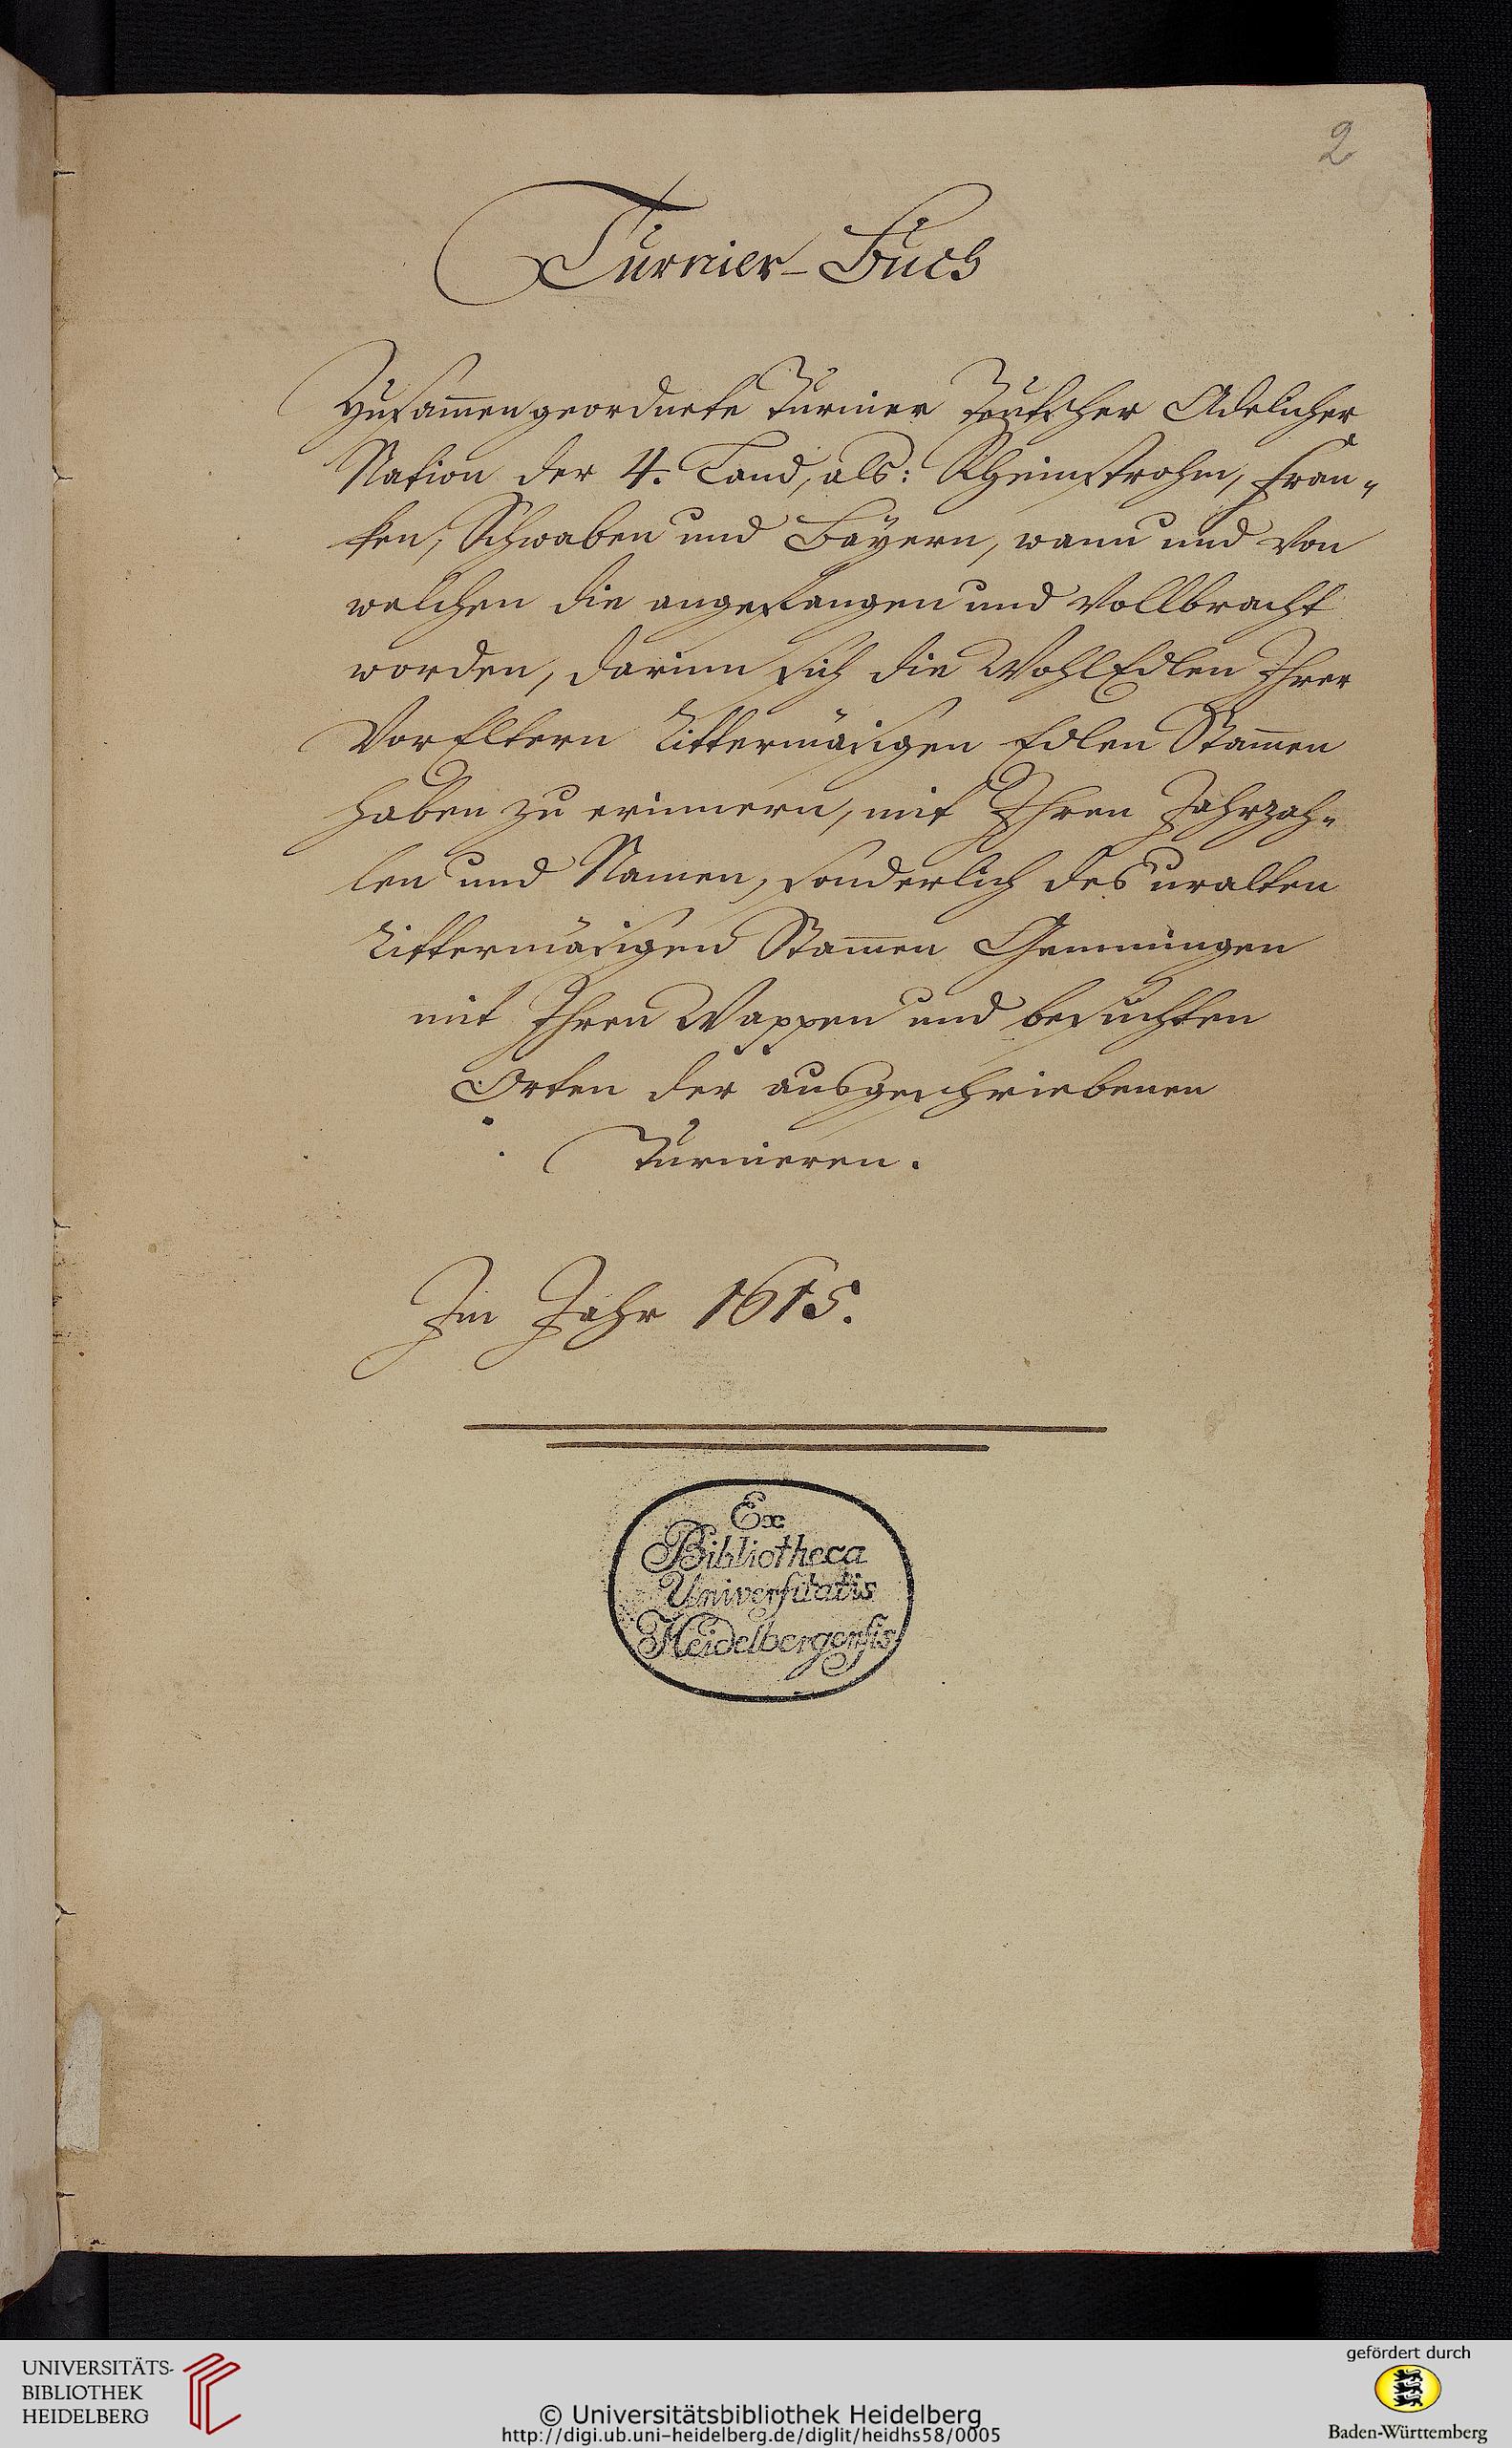 2
Turnier-Buch
Zusam̅engeordnete Turnier Teutscher Adelicher
Nation der 4. Land, als: Rheinstrohm, Fran-
ken, Schwaben und Bayern, wann und von
welchen die angefangen und vollbracht
worden, darinn sich die WohlEdlen Ihrer
VorEltern Rittermäsigen Edlen Stam̅en
haben zu erinnern, mit Ihren Jahrzah-
len und Namen, sonderlich des uralten
Rittermäsigen Stam̅en Gemmingen
mit Ihren Wappen und besuchten
Orten der ausgeschriebenen
Turnieren.
Im Jahr 1615.
Ex
Bibliotheca
Universitatis
Heidelbergensis
UNIVERSITÄTS-
BIBLIOTHEK
HEIDELBERG
© Universitätsbibliothek Heidelberg
http://digi.ub.uni-heidelberg.de/diglit/heidhs58/0005
gefördert durch
Baden-Württemberg